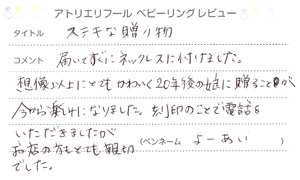 アトリエリフール ベビーリングレビュー
タイトル ステキな贈り物
コメント 届いてすぐにネックレスに付けました。
想像以上にとてもかわいく20年後の娘に贈ることが
今から楽しみになりました。刻印のことで電話も
いただきましたが
お店の方もとても親切
でした。
(ペンネーム よーあい )